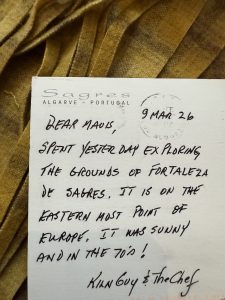 Sagres
ALGARVE - PORTUGAL
9 MAR 26
DEAR MAUIS,
SPENT YESTERDAY EXPLORING
THE GROUNDS OF FORTALEZA
DE SAGRES. IT IS ON THE
EASTERN MOST POINT OF
EUROPE. IT WAS SUNNY
AND IN THE 70'S!
KILN GUY & THE CHEF